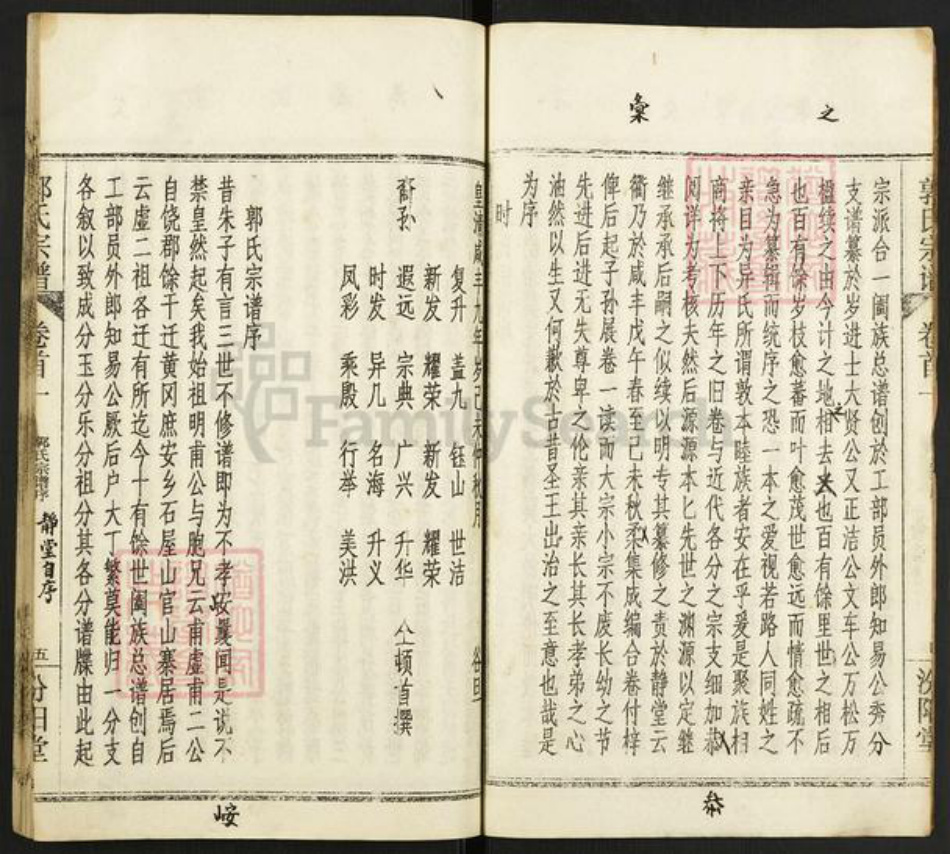 之
彙
宗派合一阖族总谱创於工部员外郎知易公秀分
支谱纂於岁进士大贤公又正洁公文车公万松万
楹续之由今计之地相去也百有馀里世之相后
也百有馀岁枝愈蕃而叶愈茂世愈远而情愈疏不
急为纂辑而统序之恐一本之爱视若路人同姓之
亲目为异氏所谓敦本睦族者安在乎爰是聚族相
商将上下历年之旧卷与近代各分之宗支细加恭
阅详为考核夫然后源源本匕先世之渊源以定继
继承承后嗣之似续以明专其纂修之责於静堂云
衢乃於咸丰戊午春至己未秋柔集成编合卷付梓
俾后起子孙展卷一读而大宗小宗不废长幼之节
先进后进无失尊卑之伦亲其亲长其长孝弟之心
油然以生又何歉於古昔圣王出治之至意也哉是
为序
时
郭氏宗谱 卷首一 汾阳堂
恭
皇清咸丰九年岁己未仲秋月 谷旦
复升 盖九 钰山 世洁
新发 耀荣 新发 耀荣
裔孙 遐远 宗典 广兴 升华 仝顿首撰
时发 异几 名海 升义
凤彩 乘殿 行举 美洪
郭氏宗谱序
昔朱子有言三世不修谱即为不孝峖曩闻是说不
禁皇然起矣我始祖明甫公与胞兄云甫虚甫二公
自饶郡馀干迁黄冈庶安乡石屋山官山寨居焉后
云虚二祖各迁有所迄今十有馀世阖族总谱创自
工部员外郎知易公厥后户大丁繁莫能归一分支
各叙以致成分玉分乐分祖分其各分谱牒由此起
郭氏宗谱 卷首一 郭氏宗谱序 静堂自序 五 汾阳堂
峖
FamilySearch